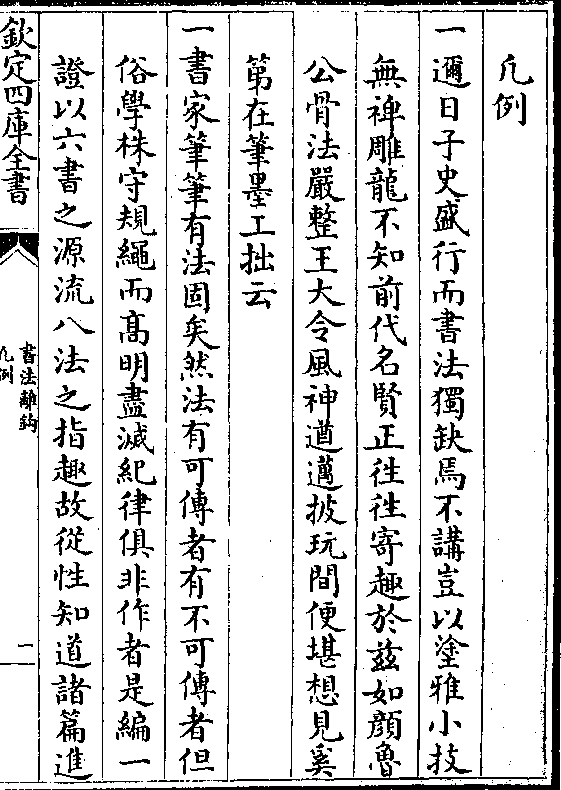 凡例
一邇日子史盛行而書法獨缺焉不講豈以塗雅小技
無裨雕龍不知前代名賢正徃徃寄趣於兹如顔魯
公骨法嚴整王大令風神遒邁披玩間便堪想見奚
第在筆墨工拙云
一書家筆筆有法固矣然法有可傳者有不可傳者但
俗學株守規繩而髙明盡滅紀律俱非作者是編一
證以六書之源流八法之指趣故從性知道諸篇進
欽定四庫全書
書法離鈎
凡例
一